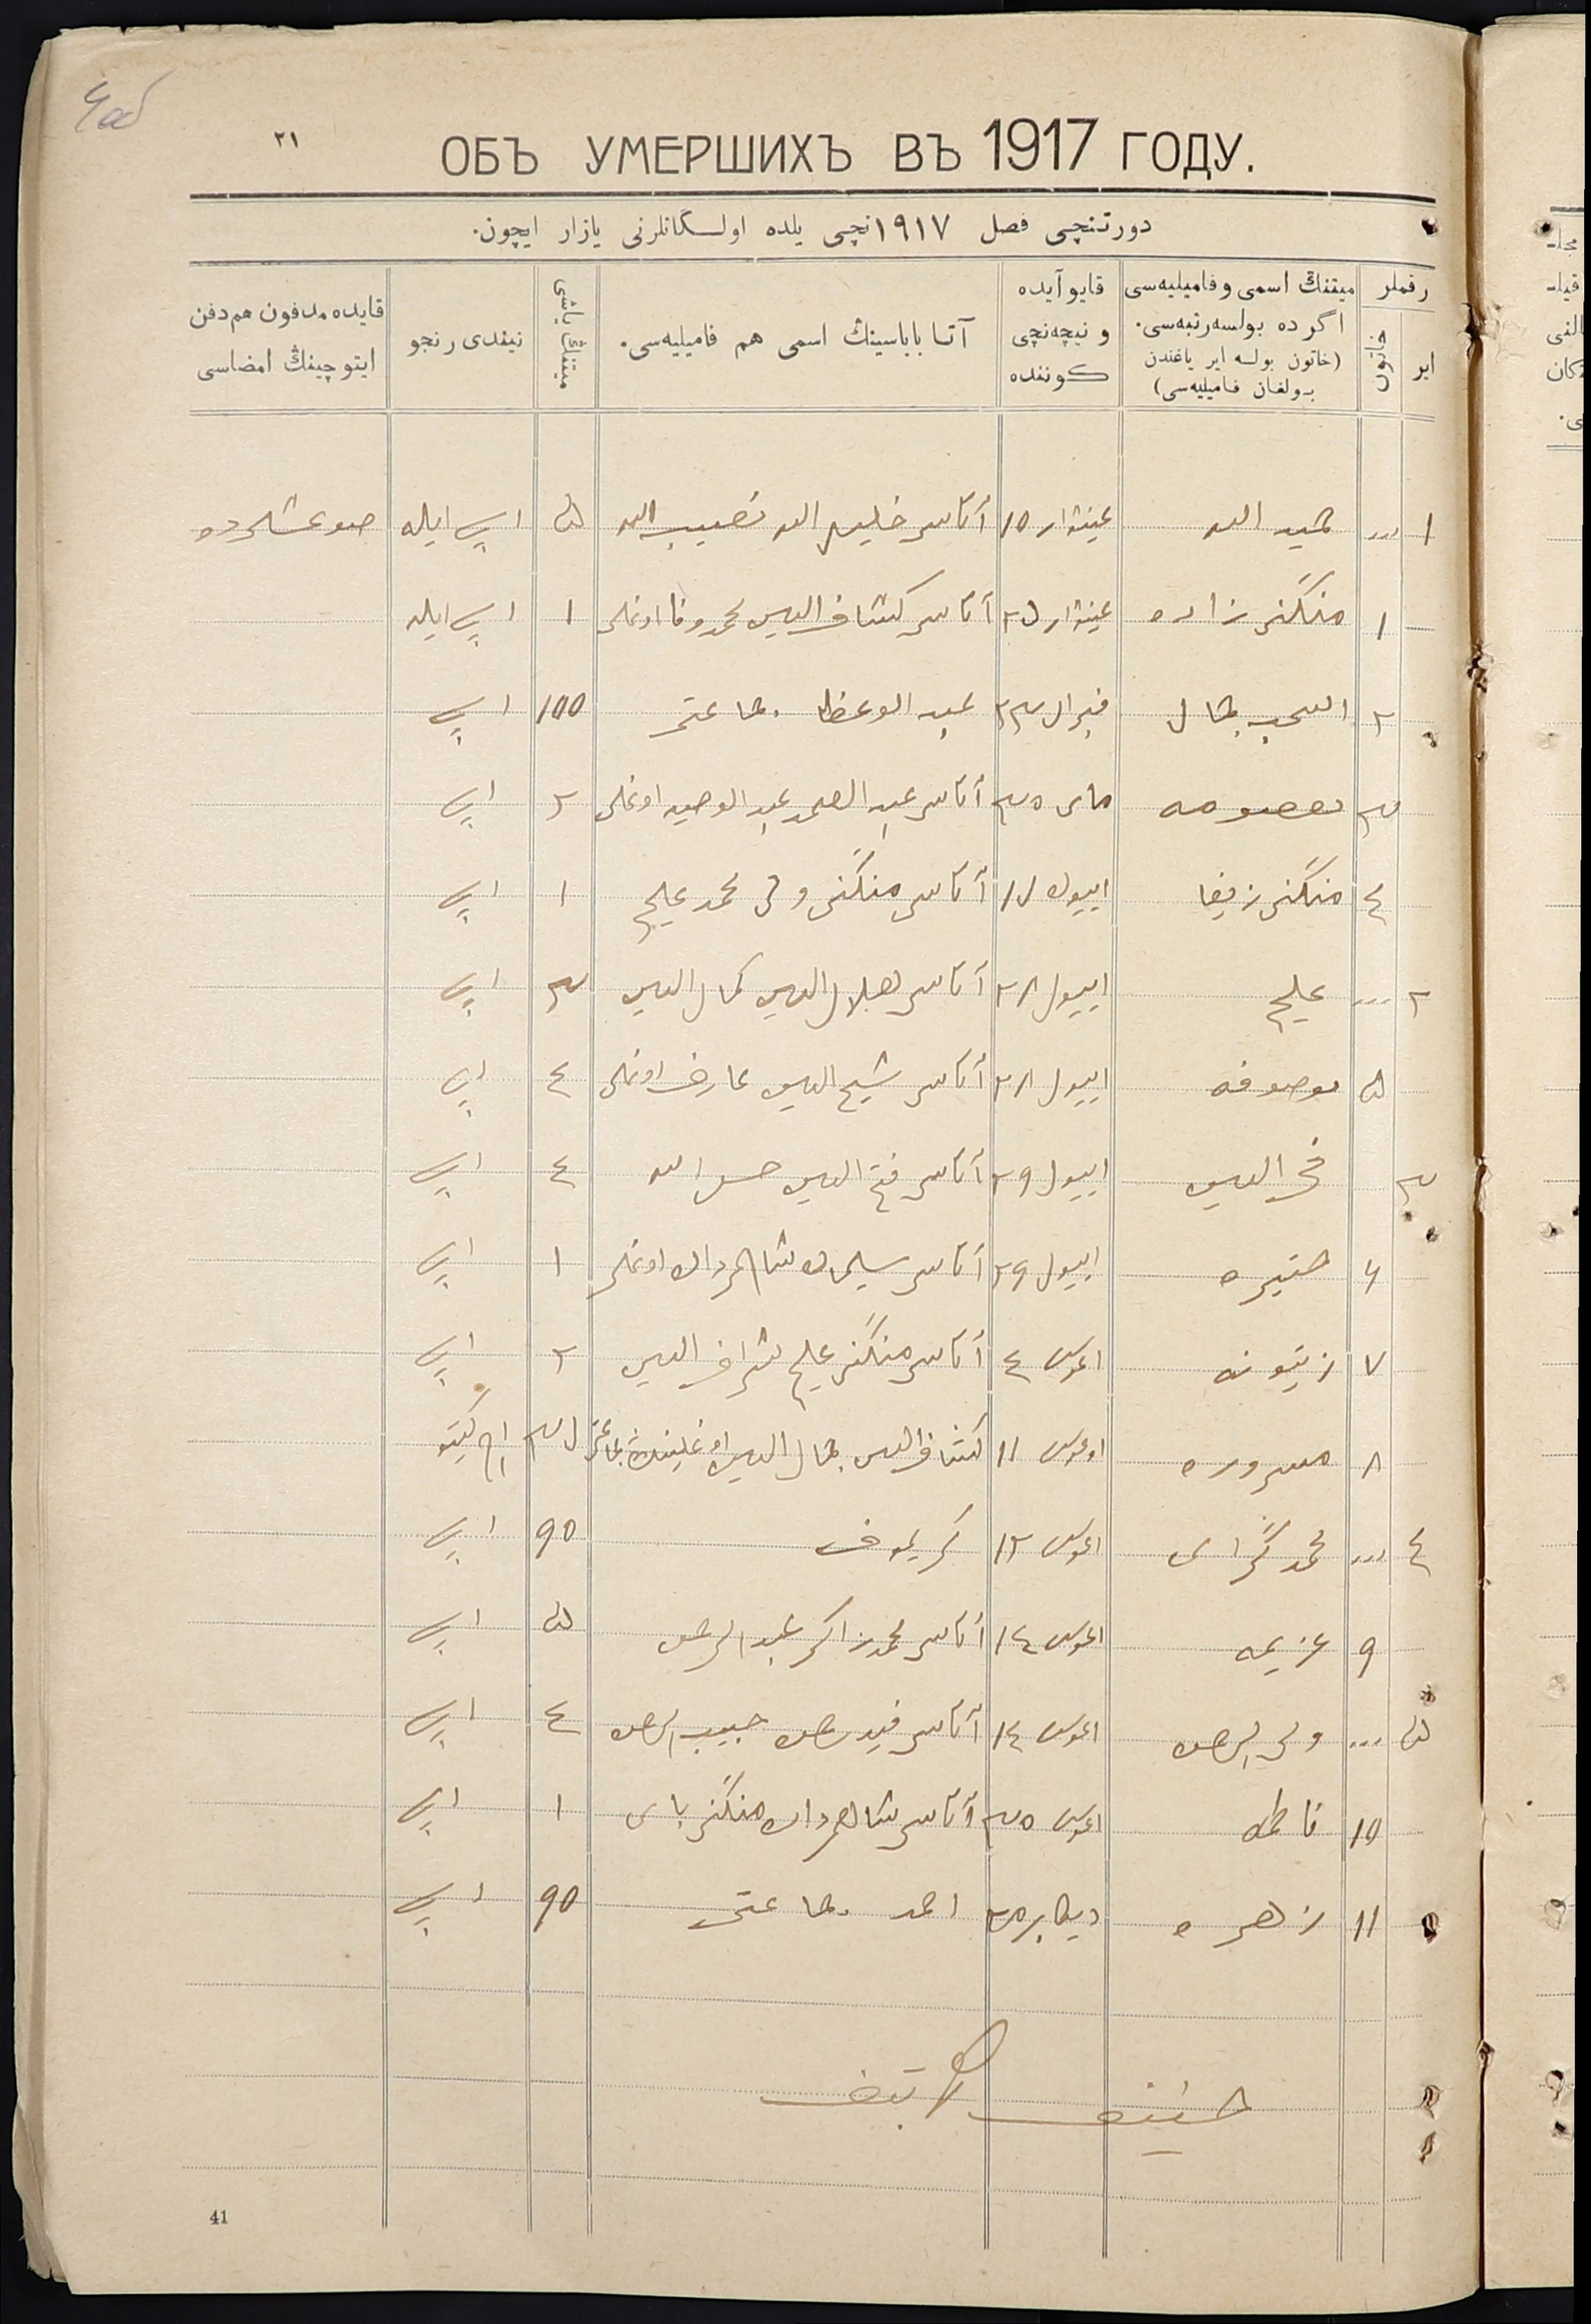 ОБЪ УМЕРШИХЪ ВЪ 1917 ГОДУ.
٢١
دورتنچی فصل ١٩١٧نچی یلده اولسگانلرنی یازار ایچون.
رقملر
ایر
خاتون
میتنڭ اسمی و فامیلیه‌سی اگرده بولسه رتبه‌سی. (خاتون بولسه ایر یاغندن بولغان فامیلیه‌سی)
قایو آیده و نیچه‌نچی کوننده
آتا باباسینڭ اسمی هم فامیلیه‌سی.
میتنڭ یاشی
نیندی رنجو
قایده مدفون هم دفن ایتوچینڭ امضاسی
١ حمید الله عینوار ١٥ آتاسی خلیل الله نصیب الله ۵ اچ ایله
١ منگنی زاده عینوار ٢۵ آتاسی کشاف الدین محمدوفا اوغلی ١ اچ ایله
٢ جمال فبرال ٢٣ جماعتی ١٠٠ اچ
٣ معصومه مای ٣٠ آتاسی عبد الصمد عبد الوحید اوغلی ٢ اچ
٤ منگنی زیفا اییول ١١ آتاسی منگنی ولی محمد علیم ١ اچ
٢ علیم اییول ٢٨ آتاسی هلال الدین کمال الدین ٣ اچ
۵ موصوفه اییول ٢٨ آتاسی شیخ الدین عارف اوغلی ٤ اچ
٣ فخر الدین اییول ٢٩ آتاسی فتح الدین حسن الله ٤ اچ
٦ اییول ٢٩ آتاسی سلیمان شاهمردان اوغلی ١ اچ
٧ زیتونه اغوس ٤ آتاسی منگنی علیم شراف الدین ٢ اچ
٨ مسروره اوغوس ١١ کشاف الدین جمال الدین اوغلینڭ جماعتی ٣۵ اچ کیتو
٤ محمد گرای اغوس ١٢ کریموف ٩٠ اچ
٩ عزیمه اغوس ١٤ آتاسی محمد زاکر عبد الرحمن ۵ اچ
۵ ولی الرحمن اغوس ١٤ آتاسی حبیب الرحمن ٤ اچ
١٠ فاطمه اغوس ٣٠ آتاسی شاهمردان منگنی بای ١ اچ
١١ زهره دیکابر احمد جماعتی ٩٠ اچ
41